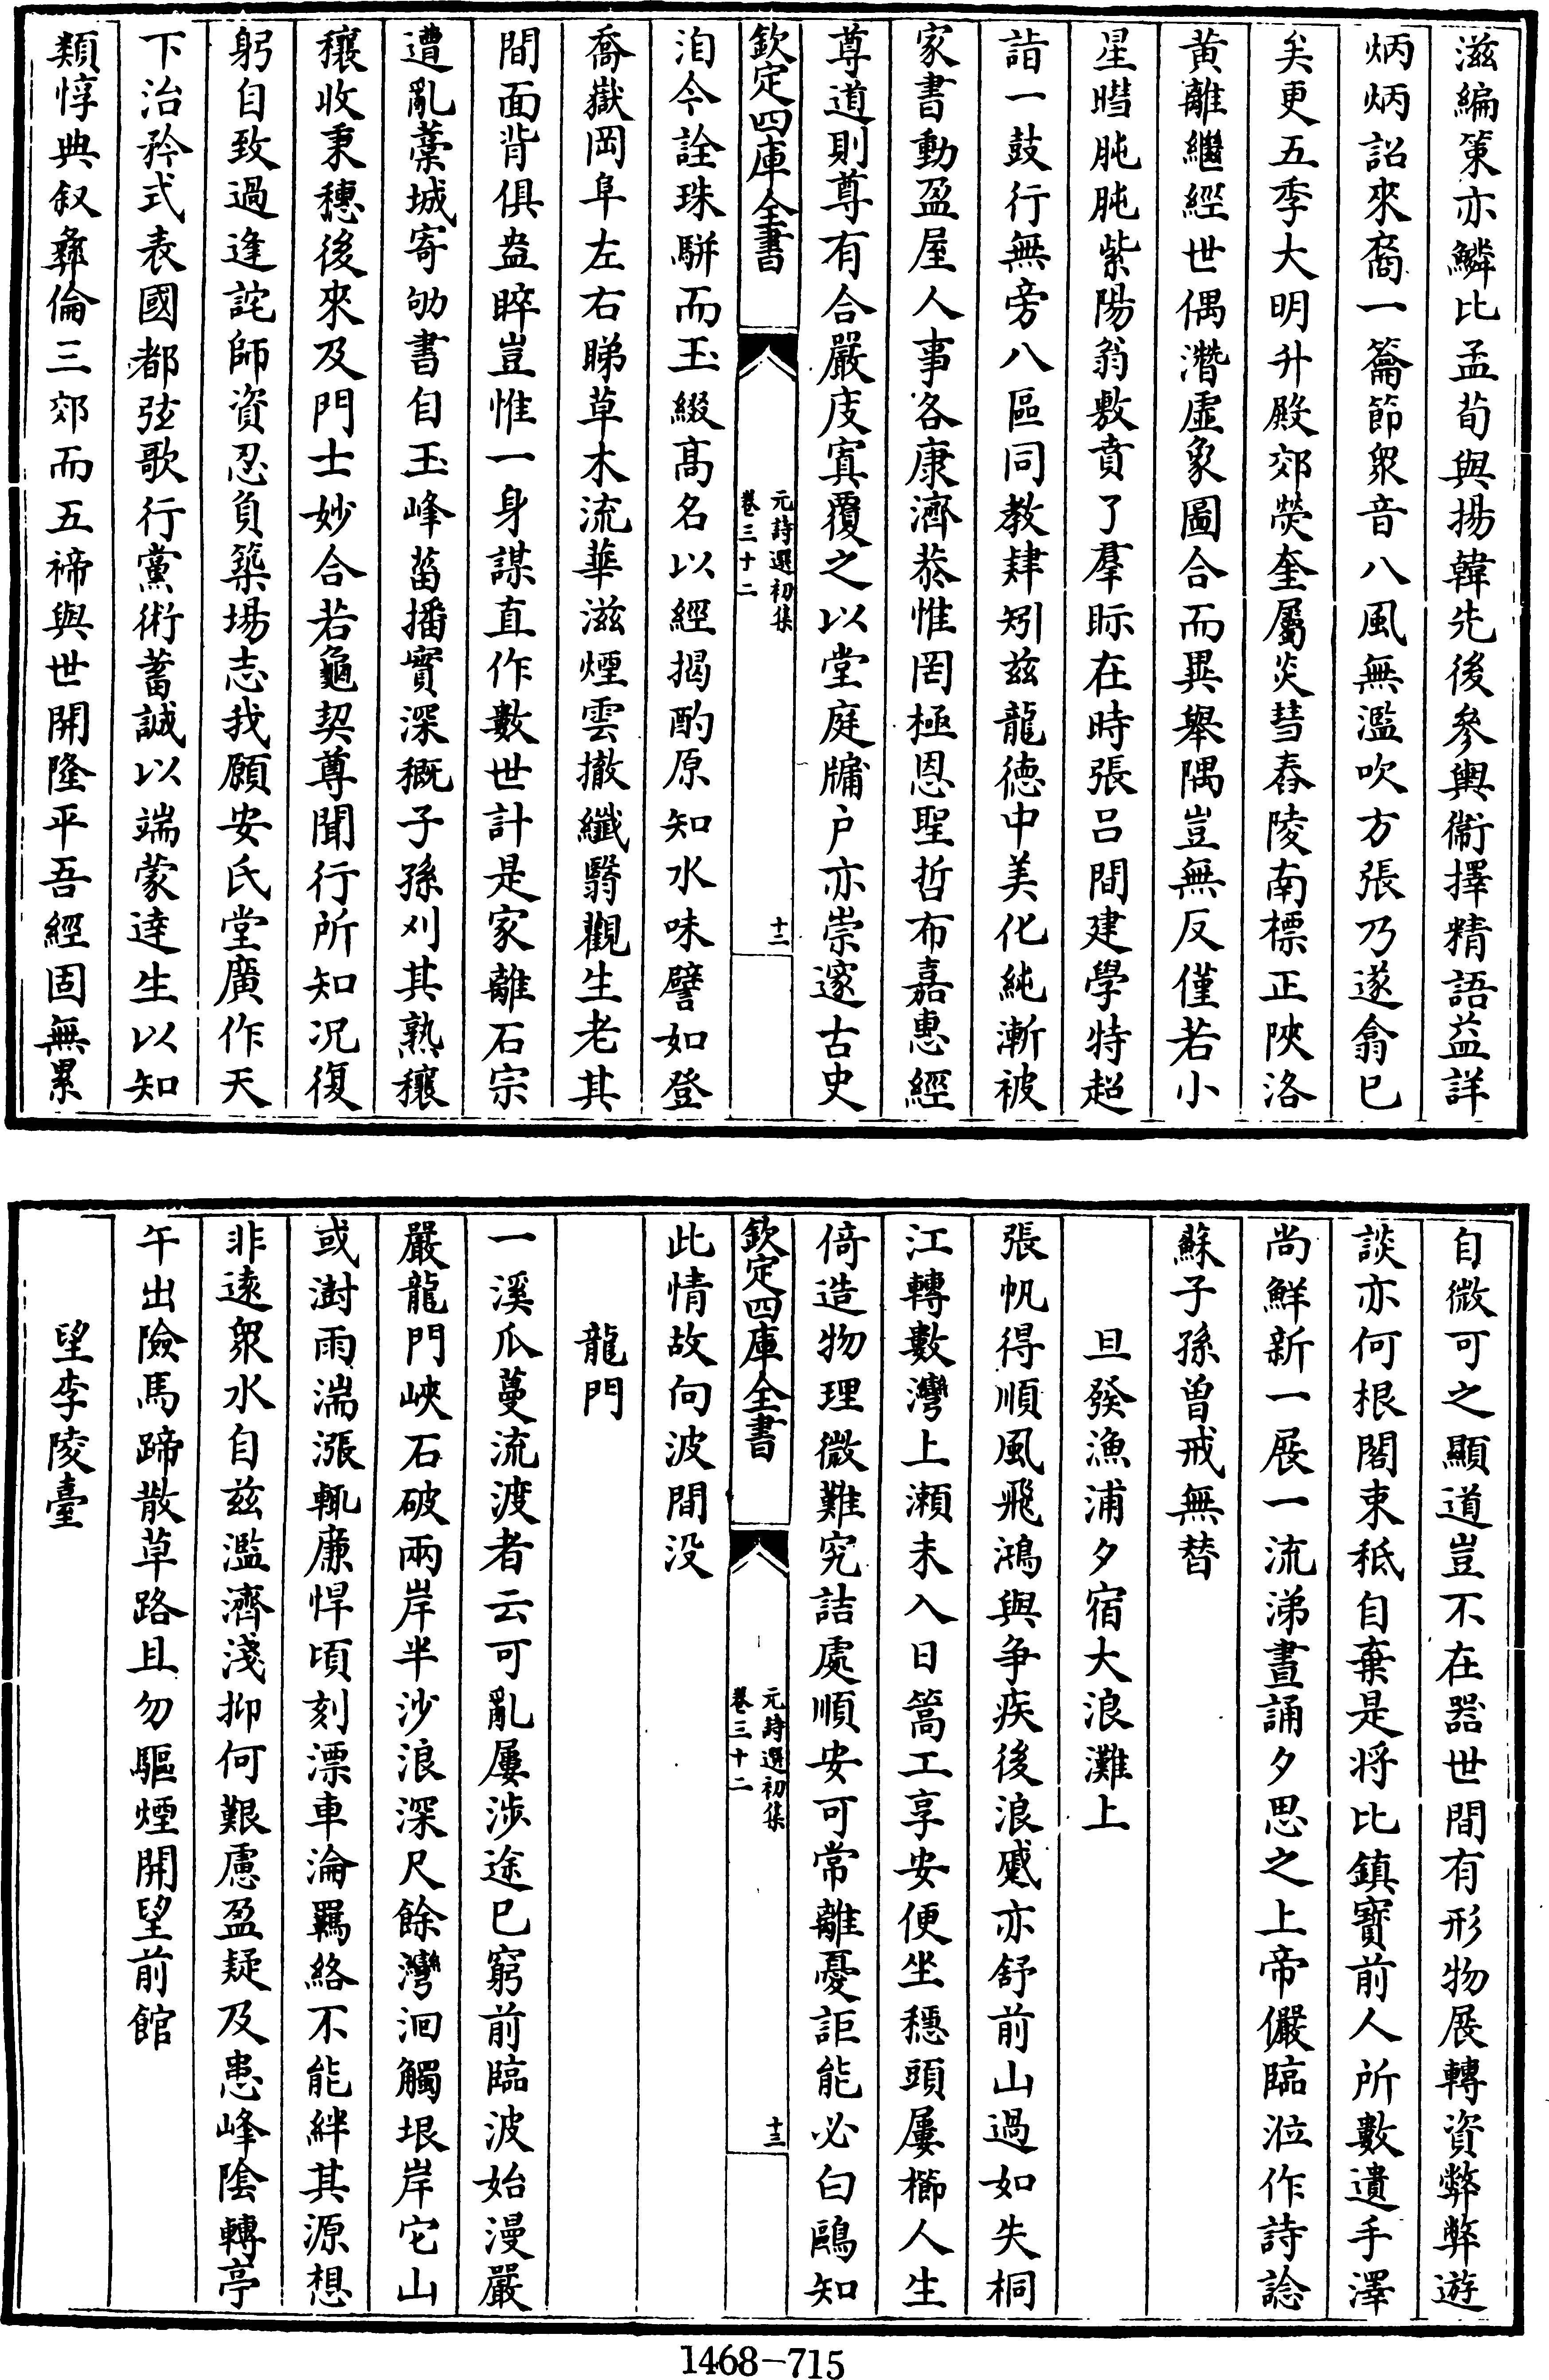 滋編策亦鱗比孟荀與揚韓先後參輿衞擇精語益詳
炳炳詔來裔一籥節衆音八風無濫吹方張乃遂翕已
矣更五季大明升殿郊熒奎屬炎彗舂陵南標正陝洛
黄離繼經世偶濳虛象圖合而異舉隅豈無反僅若小
星暳肫肫紫陽翁敷賁了羣眎在時張呂間建學特超
詣一鼓行無旁八區同教肄矧兹龍德中美化純漸被
家書動盈屋人事各康濟恭惟罔極恩聖哲布嘉惠經
尊道則尊有合嚴庋寘覆之以堂庭牖户亦崇邃古史
欽定四庫全書
元詩選初集
卷三十二
十二
洎今詮珠駢而玉綴髙名以經揭酌原知水味譬如登
喬嶽岡阜左右睇草木流華滋煙雲撤纖翳觀生老其
間面背俱盎睟豈惟一身謀直作數世計是家離石宗
遭亂藁城寄劬書自玉峰菑播實深穊子孫刈其熟穰
穰收秉穗後來及門士妙合若龜契尊聞行所知况復
躬自致過逢詫師資忍負築場志我願安氏堂廣作天
下治矜式表國都弦歌行黨術蓄誠以端蒙達生以知
類惇典叙彝倫三郊而五禘與世開隆平吾經固無累
自微可之顯道豈不在器世間有形物展轉資弊弊遊
談亦何根閣束秪自棄是将比鎮寳前人所數遺手澤
尚鮮新一展一流涕晝誦夕思之上帝儼臨涖作詩諗
蘇子孫曽戒無替
旦發漁浦夕宿大浪灘上
張帆得順風飛鴻與争疾後浪蹙亦舒前山過如失桐
江轉數灣上瀬未入日篙工享安便坐穩頭屢櫛人生
倚造物理微難究詰處順安可常離憂詎能必白鷗知
欽定四庫全書
元詩選初集
卷三十二
十三
此情故向波間没
龍門
一溪瓜蔓流渡者云可亂屢涉途已窮前臨波始漫嚴
嚴龍門峽石破兩岸半沙浪深尺餘灣洄觸垠岸它山
或澍雨湍漲輒廉悍頃刻漂車淪羈絡不能絆其源想
非遠衆水自兹濫濟淺抑何艱慮盈疑及患峰陰轉亭
午出險馬蹄散草路且勿驅煙開望前館
望李陵臺
1468-715